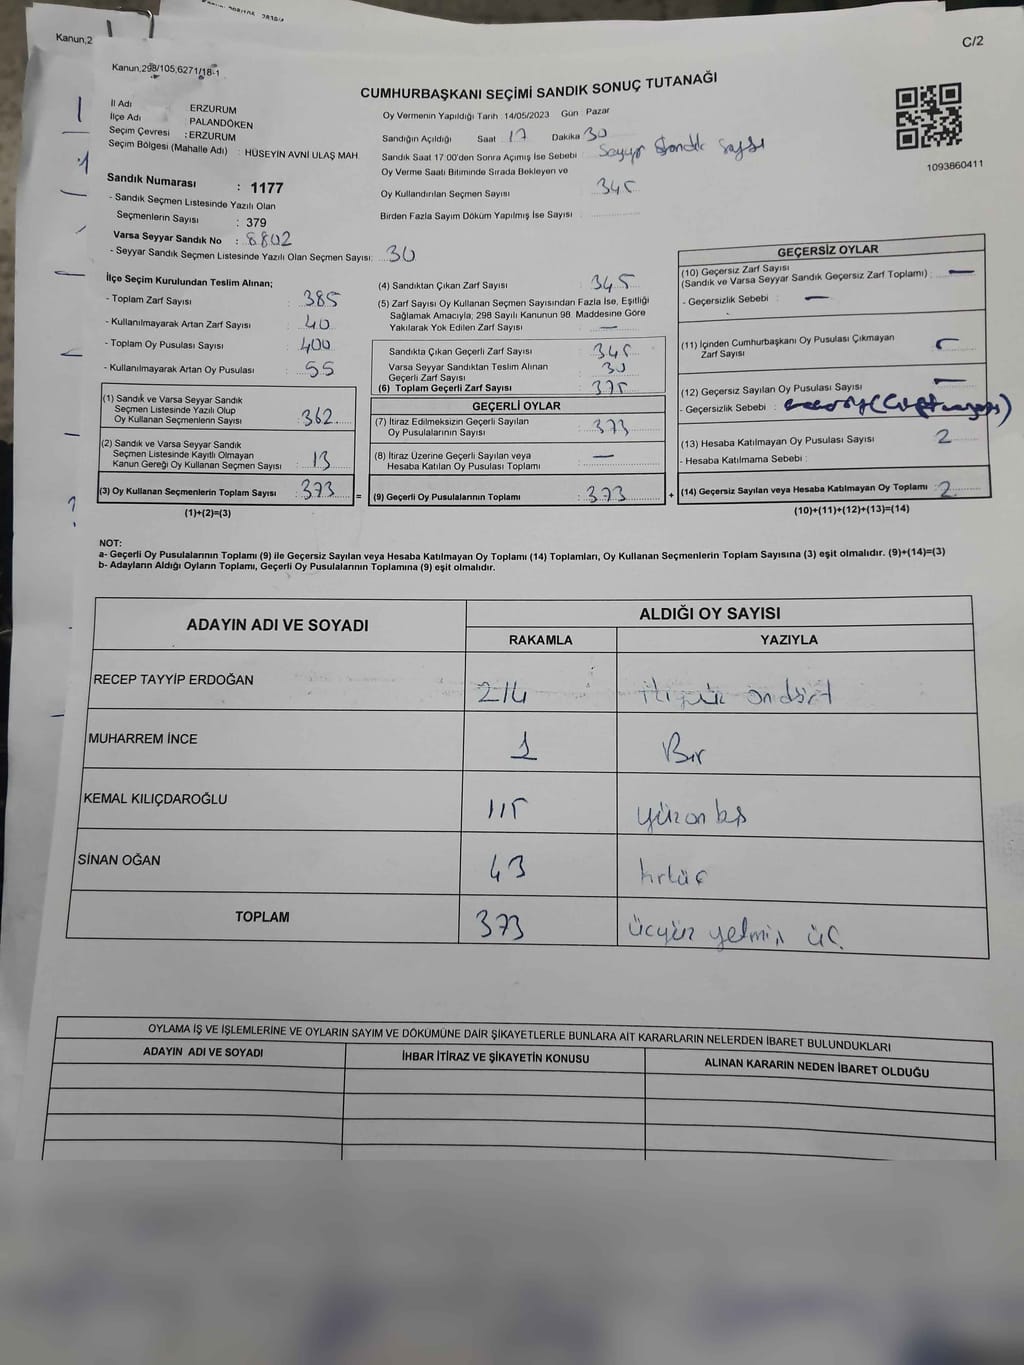 Kanun,2
C/2
Kanun,298/105,6271/18-1
CUMHURBAŞKANI SEÇİMİ SANDIK SONUÇ TUTANAĞI
İl Adı ERZURUM
İlçe Adı PALANDÖKEN
Seçim Çevresi : ERZURUM
Seçim Bölgesi (Mahalle Adı) : HÜSEYİN AVNİ ULAŞ MAH
Sandık Numarası : 1177
- Sandık Seçmen Listesinde Yazılı Olan
Seçmenlerin Sayısı : 379
Varsa Seyyar Sandık No : 8802
- Seyyar Sandık Seçmen Listesinde Yazılı Olan Seçmen Sayısı: 30
Oy Vermenin Yapıldığı Tarih 14/05/2023 Gün Pazar
Sandığın Açıldığı Saat 17 Dakika 30
Sandık Saat 17:00'den Sonra Açımış İse Sebebi Seyyar Sandık
Oy Verme Saati Bitiminde Sırada Bekleyen ve
Oy Kullandırılan Seçmen Sayısı 345
Birden Fazla Sayım Döküm Yapılmış İse Sayısı :
1093860411
İlçe Seçim Kurulundan Teslim Alınan;
- Toplam Zarf Sayısı : 385
- Kullanılmayarak Artan Zarf Sayısı : 40
- Toplam Oy Pusulası Sayısı : 400
- Kullanılmayarak Artan Oy Pusulası : 55
(1) Sandık ve Varsa Seyyar Sandık
Seçmen Listesinde Yazılı Olup
Oy Kullanan Seçmenlerin Sayısı : 362
(2) Sandık ve Varsa Seyyar Sandık
Seçmen Listesinde Kayıtlı Olmayan
Kanun Gereği Oy Kullanan Seçmen Sayısı : 13
(3) Oy Kullanan Seçmenlerin Toplam Sayısı : 373
(1)+(2)=(3)
(4) Sandıktan Çıkan Zarf Sayısı : 345
(5) Zarf Sayısı Oy Kullanan Seçmen Sayısından Fazla İse, Eşitliği
Sağlamak Amacıyla; 298 Sayılı Kanunun 98. Maddesine Göre
Yakılarak Yok Edilen Zarf Sayısı : —
Sandıkta Çıkan Geçerli Zarf Sayısı : 345
Varsa Seyyar Sandıktan Teslim Alınan
Geçerli Zarf Sayısı : 30
(6) Toplam Geçerli Zarf Sayısı : 375
GEÇERLİ OYLAR
(7) İtiraz Edilmeksizin Geçerli Sayılan
Oy Pusulalarının Sayısı : 373
(8) İtiraz Üzerine Geçerli Sayılan veya
Hesaba Katılan Oy Pusulası Toplamı : —
= (9) Geçerli Oy Pusulalarının Toplamı : 373 +
GEÇERSİZ OYLAR
(10) Geçersiz Zarf Sayısı
(Sandık ve Varsa Seyyar Sandık Geçersiz Zarf Toplamı) : —
- Geçersizlik Sebebi : —
(11) İçinden Cumhurbaşkanı Oy Pusulası Çıkmayan
Zarf Sayısı
(12) Geçersiz Sayılan Oy Pusulası Sayısı : —
- Geçersizlik Sebebi :
(13) Hesaba Katılmayan Oy Pusulası Sayısı : 2
- Hesaba Katılmama Sebebi :
(14) Geçersiz Sayılan veya Hesaba Katılmayan Oy Toplamı : 2
(10)+(11)+(12)+(13)=(14)
NOT:
a- Geçerli Oy Pusulalarının Toplamı (9) ile Geçersiz Sayılan veya Hesaba Katılmayan Oy Toplamı (14) Toplamları, Oy Kullanan Seçmenlerin Toplam Sayısına (3) eşit olmalıdır. (9)+(14)=(3)
b- Adayların Aldığı Oyların Toplamı, Geçerli Oy Pusulalarının Toplamına (9) eşit olmalıdır.
ADAYIN ADI VE SOYADI
ALDIĞI OY SAYISI
RAKAMLA YAZIYLA
RECEP TAYYİP ERDOĞAN 214 ikiyüz ondört
MUHARREM İNCE 1 Bir
KEMAL KILIÇDAROĞLU 115 yüzon beş
SİNAN OĞAN 43 kırküç
TOPLAM 373 üçyüz yetmiş üç
OYLAMA İŞ VE İŞLEMLERİNE VE OYLARIN SAYIM VE DÖKÜMÜNE DAİR ŞİKAYETLERLE BUNLARA AİT KARARLARIN NELERDEN İBARET BULUNDUKLARI
ADAYIN ADI VE SOYADI İHBAR İTİRAZ VE ŞİKAYETİN KONUSU ALINAN KARARIN NEDEN İBARET OLDUĞU